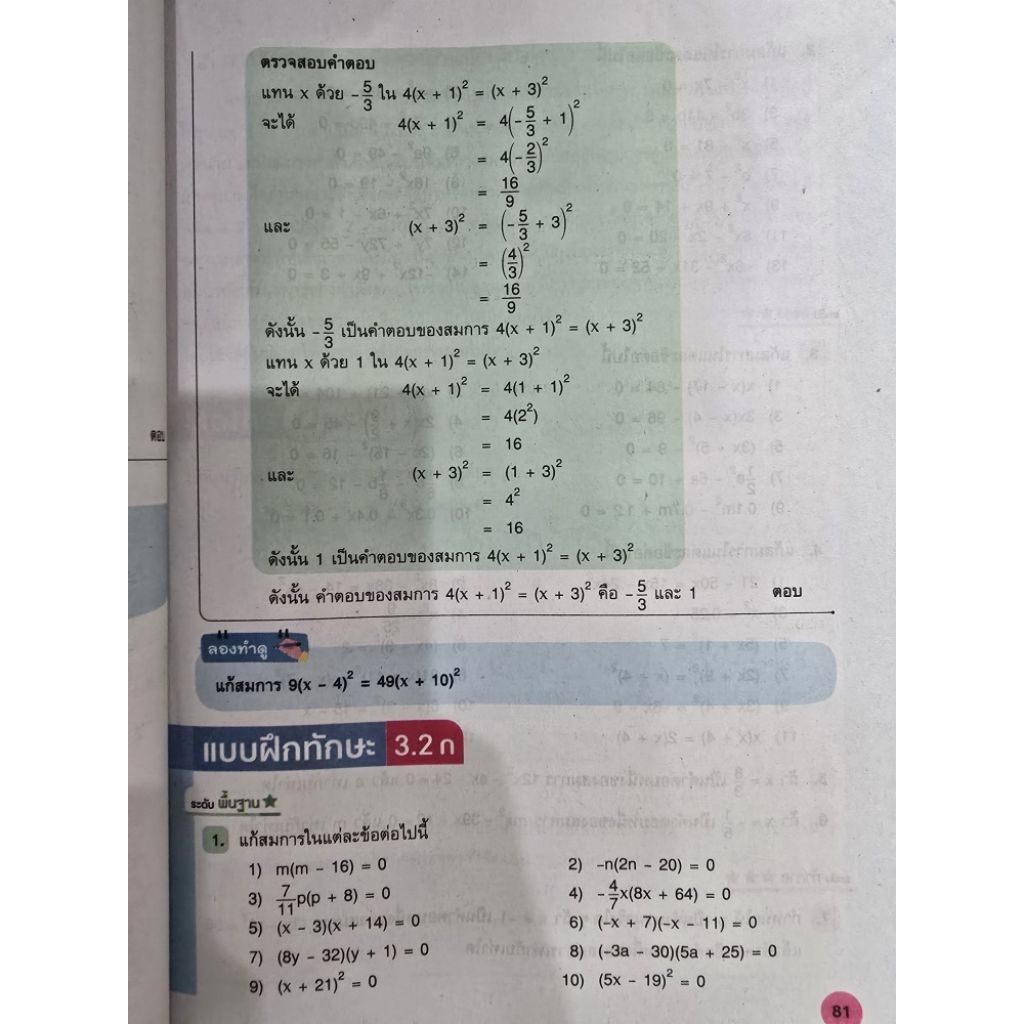 ตรวจสอบคำตอบ
แทน x ด้วย -5/3 ใน 4(x + 1)² = (x + 3)²
จะได้ 4(x + 1)² = 4(-5/3 + 1)²
= 4(-2/3)²
= 16/9
และ (x + 3)² = (-5/3 + 3)²
= (4/3)²
= 16/9
ดังนั้น -5/3 เป็นคำตอบของสมการ 4(x + 1)² = (x + 3)²
แทน x ด้วย 1 ใน 4(x + 1)² = (x + 3)²
จะได้ 4(x + 1)² = 4(1 + 1)²
= 4(2²)
= 16
และ (x + 3)² = (1 + 3)²
= 4²
= 16
ดังนั้น 1 เป็นคำตอบของสมการ 4(x + 1)² = (x + 3)²
ดังนั้น คำตอบของสมการ 4(x + 1)² = (x + 3)² คือ -5/3 และ 1 ตอบ
ตอบ
ลองทำดู
แก้สมการ 9(x - 4)² = 49(x + 10)²
แบบฝึกทักษะ 3.2 ก
ระดับ พื้นฐาน ★
1. แก้สมการในแต่ละข้อต่อไปนี้
1) m(m - 16) = 0 2) -n(2n - 20) = 0
3) 7/11 p(p + 8) = 0 4) -4/7 x(8x + 64) = 0
5) (x - 3)(x + 14) = 0 6) (-x + 7)(-x - 11) = 0
7) (8y - 32)(y + 1) = 0 8) (-3a - 30)(5a + 25) = 0
9) (x + 21)² = 0 10) (5x - 19)² = 0
81